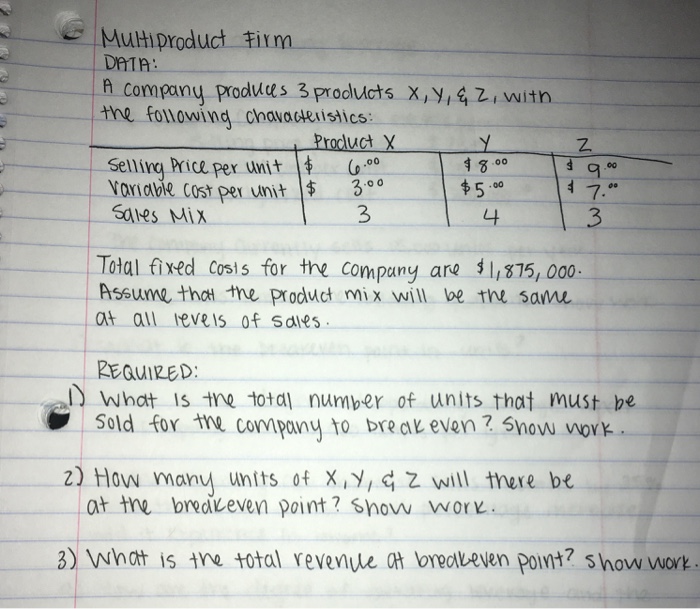 Multiproduct Firm
DATA:
A company produces 3 products X, Y, & Z, with
the following characteristics:
Product X Y Z
Selling Price per unit $ 6.00 $ 8.00 $ 9.00
Variable cost per unit $ 3.00 $ 5.00 $ 7.00
Sales Mix 3 4 3
Total fixed costs for the company are $1,875,000.
Assume that the product mix will be the same
at all levels of sales.
REQUIRED:
1) What is the total number of units that must be
sold for the company to breakeven? Show work.
2) How many units of X, Y, & Z will there be
at the breakeven point? Show work.
3) What is the total revenue at breakeven point? Show work.